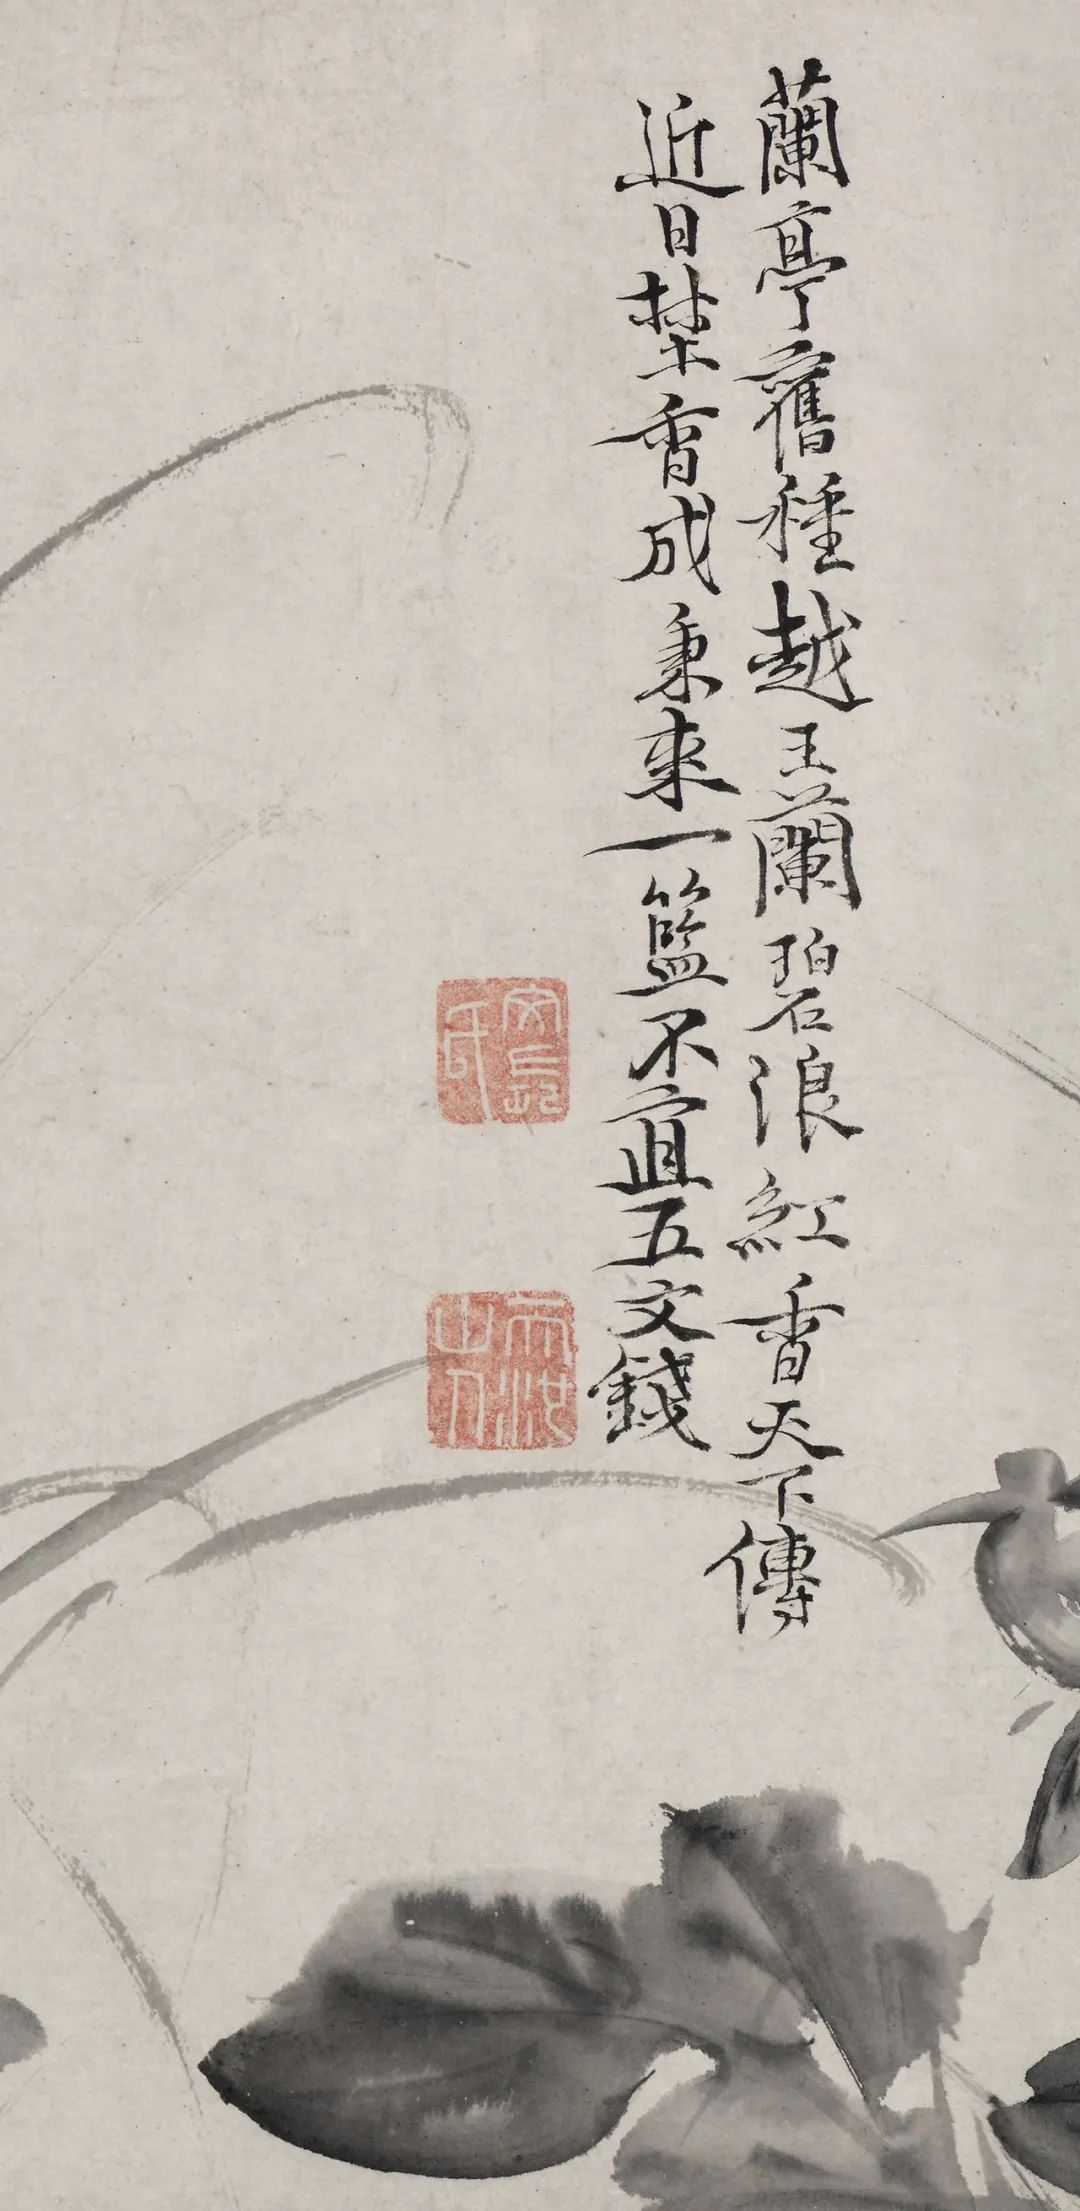 蘭亭舊種越王蘭碧浪紅香天下傳
近日埜香成秉束一籃不直五文錢
文長氏
天池山人